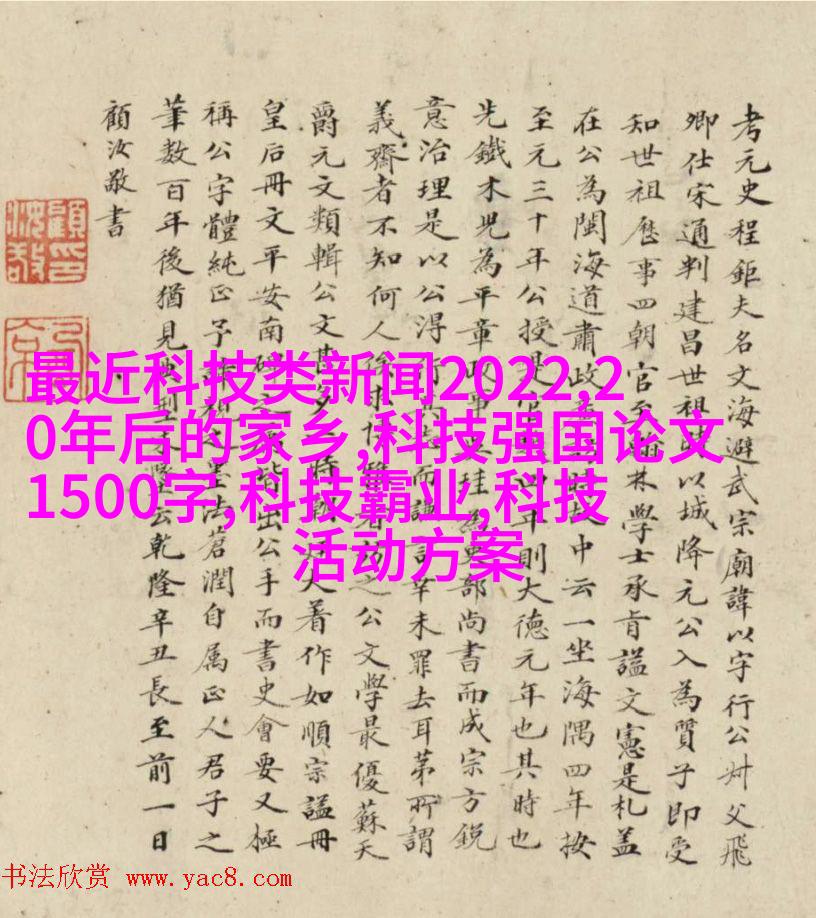 考元史程鉅夫名文海避武宗廟諱以字行公叔父飛
卿仕宋通判建昌世祖時以城降元公入為質子即受
知世祖歷事四朝官至翰林學士承旨諡文憲是札蓋
在公為閩海道肅政中云一坐海隅四年按
至元三十年公授是官四年則大德元年也其時也
先鐵木兒為平章政事珪為部尚書而成宗方銳
意治理是以公得行而謙言辛未罪去耳苐所謂
義齋者不知何人之公文學最優蘇天
爵元文類輯公文甚多一時大著作如順宗諡冊
皇后冊文平安南碑皆出公手而書史會要又極
稱公字體純正予墨法蒼潤自属正人君子之
筆數百年後猶見典型云乾隆辛丑長至前一日
顧汝敬書
顧印汝敬
最近科技类新闻2022,2
0年后的家乡,科技强国论文
1500字,科技霸业,科技
活动方案
书法欣赏 www.yac8.com